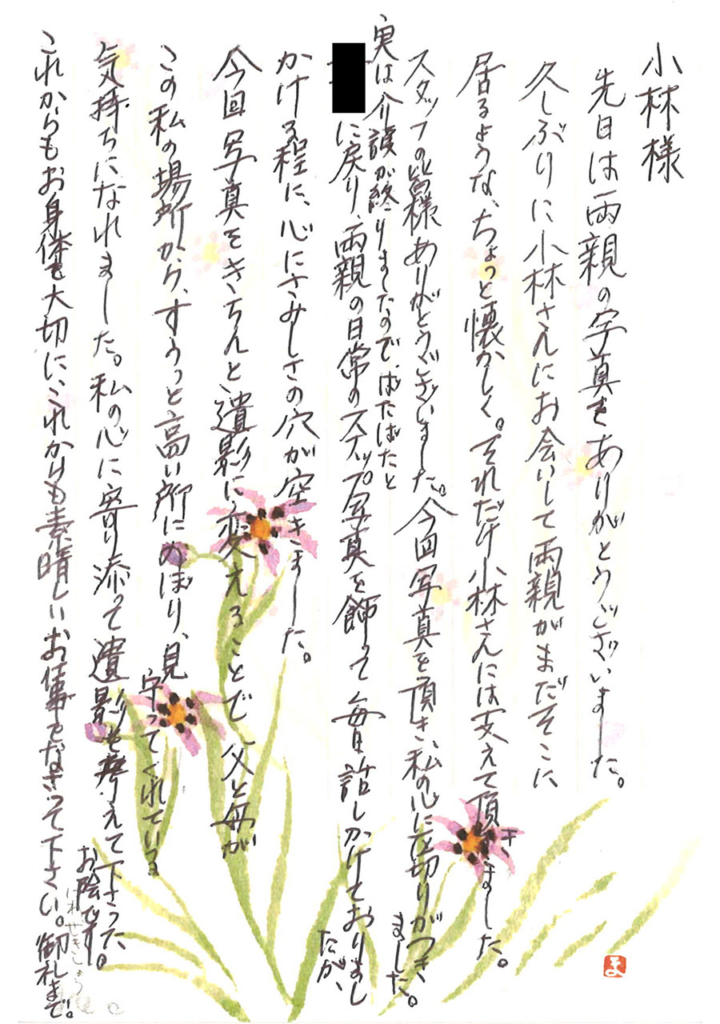 小林様
先日は両親の写真をありがとうございました。
久しぶりに小林さんにお会いして両親がまだそこに
居るような、ちょっと懐かしく。それだけ小林さんには支えて頂きました。
スタッフの皆様ありがとうございました。今回写真を頂き、私の心に区切りがつきました。
実は介護が終りましたので、ばたばたと
に戻り、両親の日常のスナップ写真を飾って毎日話しかけておりましたが、
かける程に、心にさみしさの穴が空きました。
今回写真をきちんと遺影に変えることで、父と母が
この私の場所から、すうっと高い所にのぼり、見守ってくれている
気持ちになれました。私の心に寄り添って遺影を考えて下さったお陰です。
これからもお身体を大切に、これからも素晴しいお仕事でなさって下さい。御礼まで。
はわせきしょう
ま